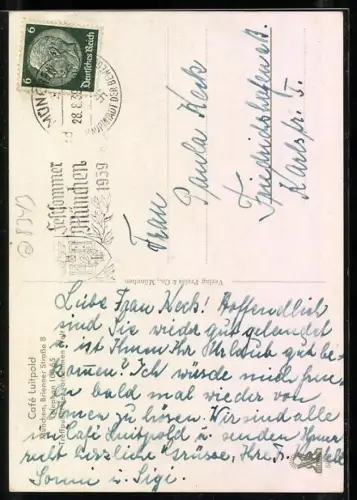 6
6
Deutsches Reich
MÜNCHEN
28.8.39
HAUPTSTADT DER BEWEGUNG
Festsommer
München
1939
Frau
Paula Keck
Friedrichshafenerstr.
Karlspl. 5
Verlag Preiß & Co., München
Café Luitpold
München, Brienner Straße 8
Telephon
Liebe Frau Keck! Hoffendlich
sind Sie wieder gut gelandet
u. ist Ihnen Ihr Urlaub gut be-
kommen? Ich würde mich freu-
en bald mal wieder von
Ihnen zu hören. Wir sind alle
im Café Luitpold u. senden Ihnen
recht herzliche Grüsse, Ihre
Sonni u. Sigi.